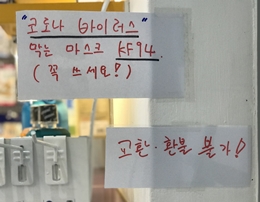 "코로나 바이러스"
막는 마스크 KF94
(꼭 쓰세요!)
교환·환불 불가!